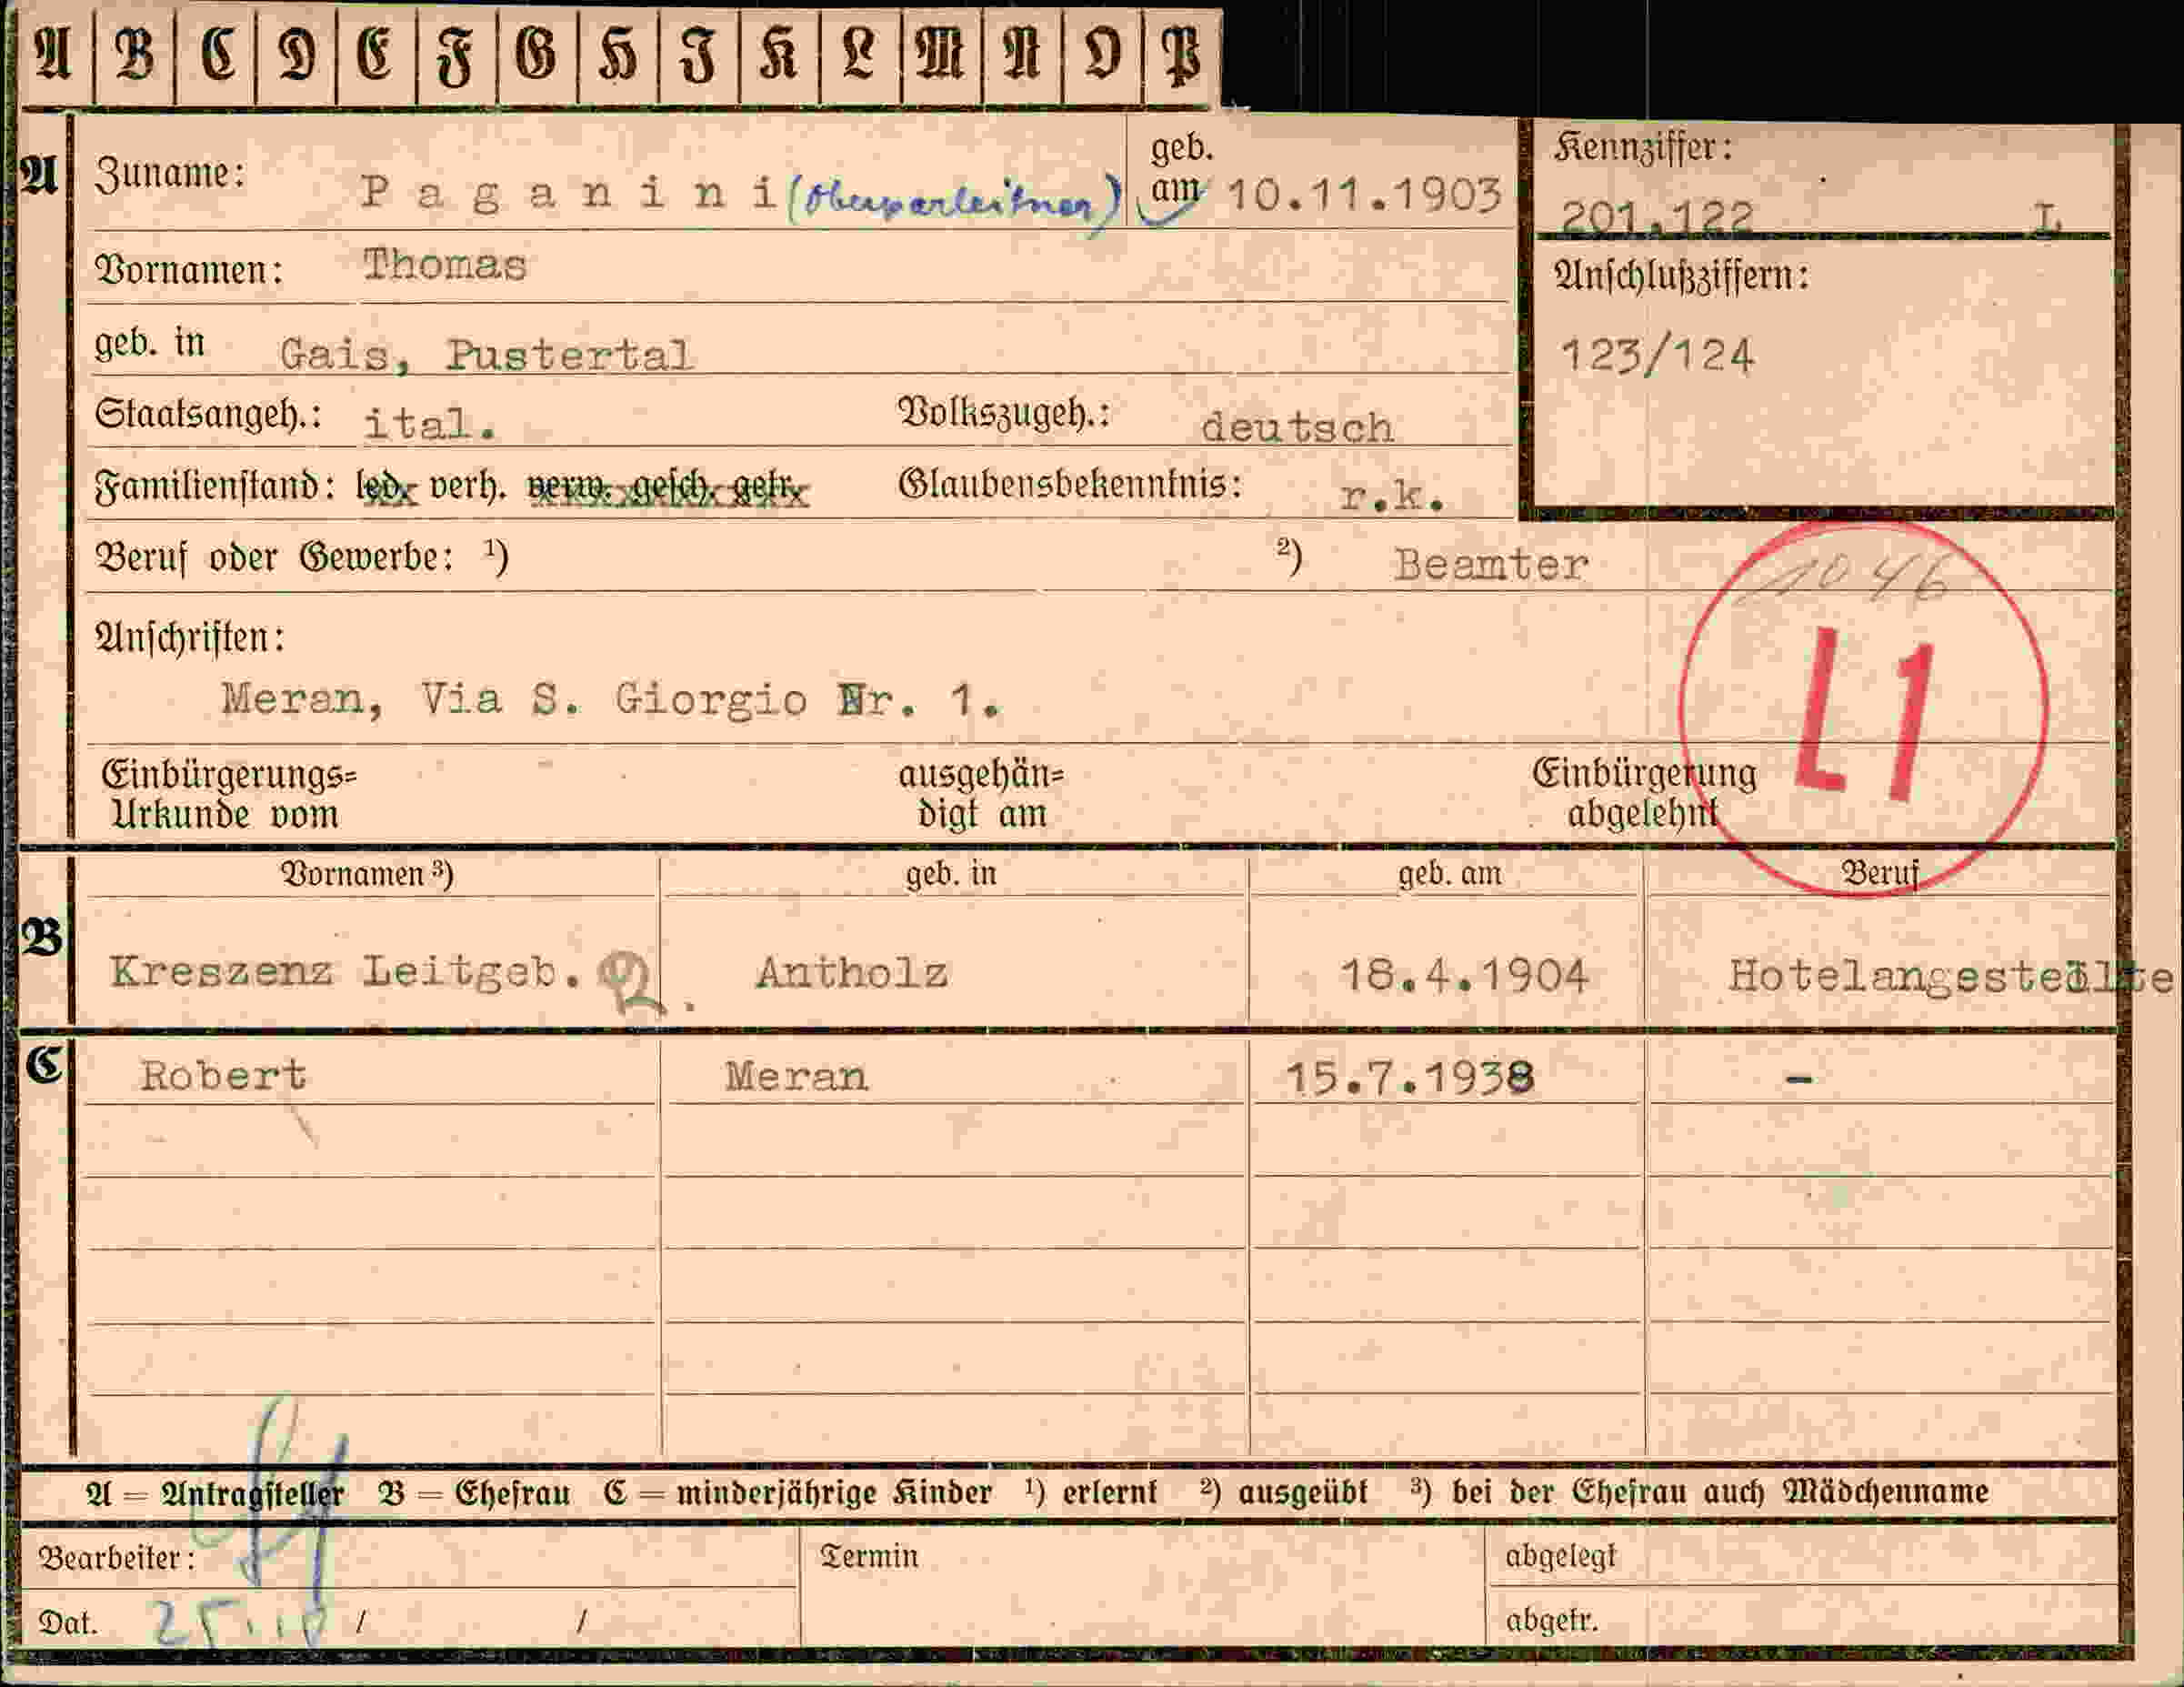 A B C D E F G H I K L M N O P
A Zuname: Paganini (Oberparleitner) geb. am 10.11.1903
Kennziffer: 201.122 I
Vornamen: Thomas
Anschlußziffern:
geb. in Gais, Pustertal
123/124
Staatsangeh.: ital. Volkszugeh.: deutsch
Familienstand: led. verh. verw. gesch. getr. Glaubensbekenntnis: r.k.
Beruf oder Gewerbe: ¹) ²) Beamter
1046
Anschriften:
L1
Meran, Via S. Giorgio Nr. 1.
Einbürgerungs= ausgehän= Einbürgerung
Urkunde vom digt am abgelehnt
Vornamen ³) geb. in geb. am Beruf
B Kreszenz Leitgeb. Antholz 18.4.1904 Hotelangestellte
C Robert Meran 15.7.1938 -
A = Antragsteller B = Ehefrau C = minderjährige Kinder ¹) erlernt ²) ausgeübt ³) bei der Ehefrau auch Mädchenname
Bearbeiter: Termin abgelegt
Dat. / / abgetr.